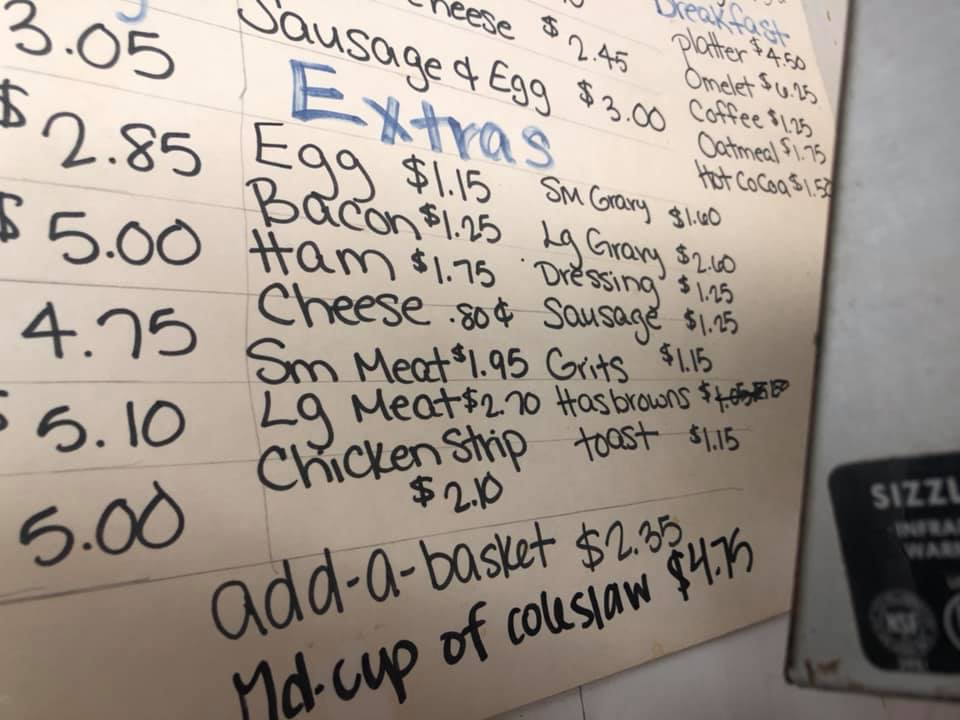 3.05
$ 2.85
$ 5.00
4.75
5.10
5.00
cheese $ 2.45
Sausage & Egg $3.00
Extras
Egg $1.15
Bacon $1.25
Ham $1.75
Cheese .80¢
Sm Meat $1.95
Lg Meat $2.70
Chicken Strip
$2.10
SM Gravy $1.60
Lg Gravy $2.60
Dressing $1.25
Sausage $1.25
Grits $1.15
Hasbrowns $
toast $1.15
add-a-basket $2.35
Md. cup of coleslaw $4.75
Breakfast
platter $4.50
Omelet $6.25
Coffee $1.25
Oatmeal $1.75
Hot CoCoa $1.50
NSF